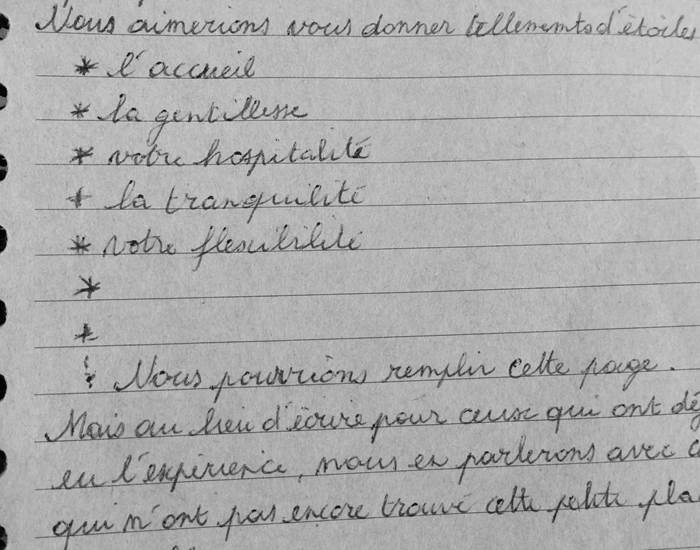 Nous aimerions vous donner tellements d'étoiles
* l'accueil
* la gentillesse
* votre hospitalité
+ la tranquilité
* votre flexibilité
*
+
Nous pourrions remplir cette page.
Mais au lieu d'écrire pour ceux qui ont dé
eu l'expérience, nous en parlerons avec c
qui n'ont pas encore trouvé cette petite pla